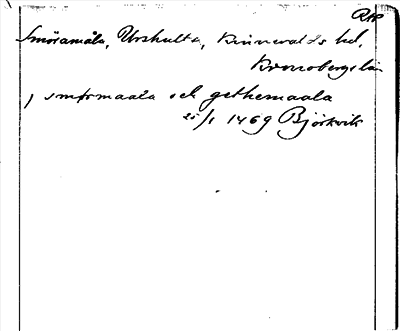 RAP
Smöramåla, Urshulta, Kinnevalds hd,
Kronobergs län
j smørmaala och gethemaala
25/1 1469 Björkvik